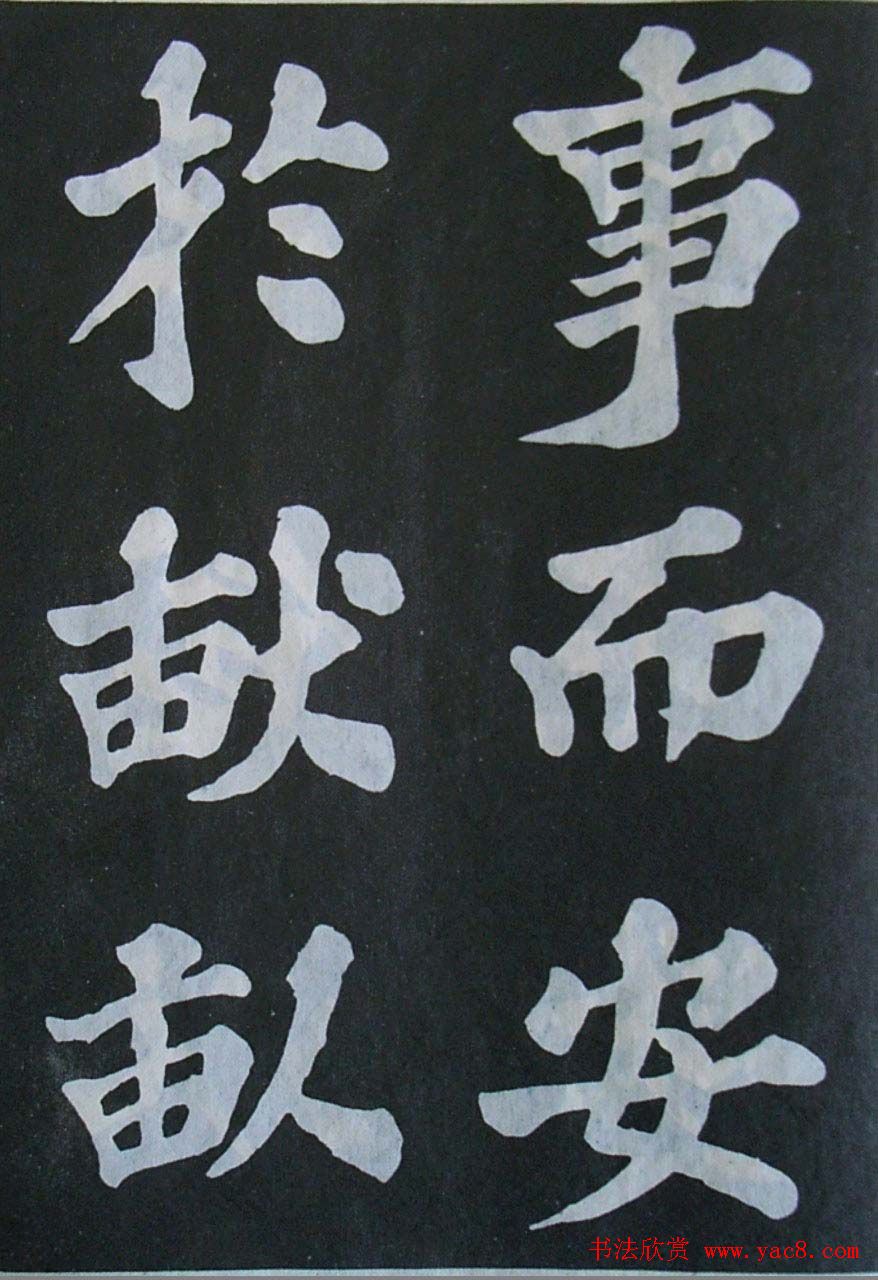 事而安
於畎畝
书法欣赏 www.yac8.com